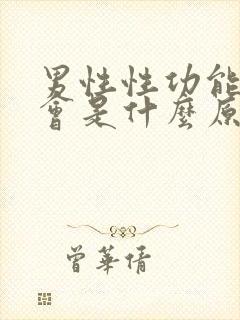 男性性功能
會是什麼原
曾華倩